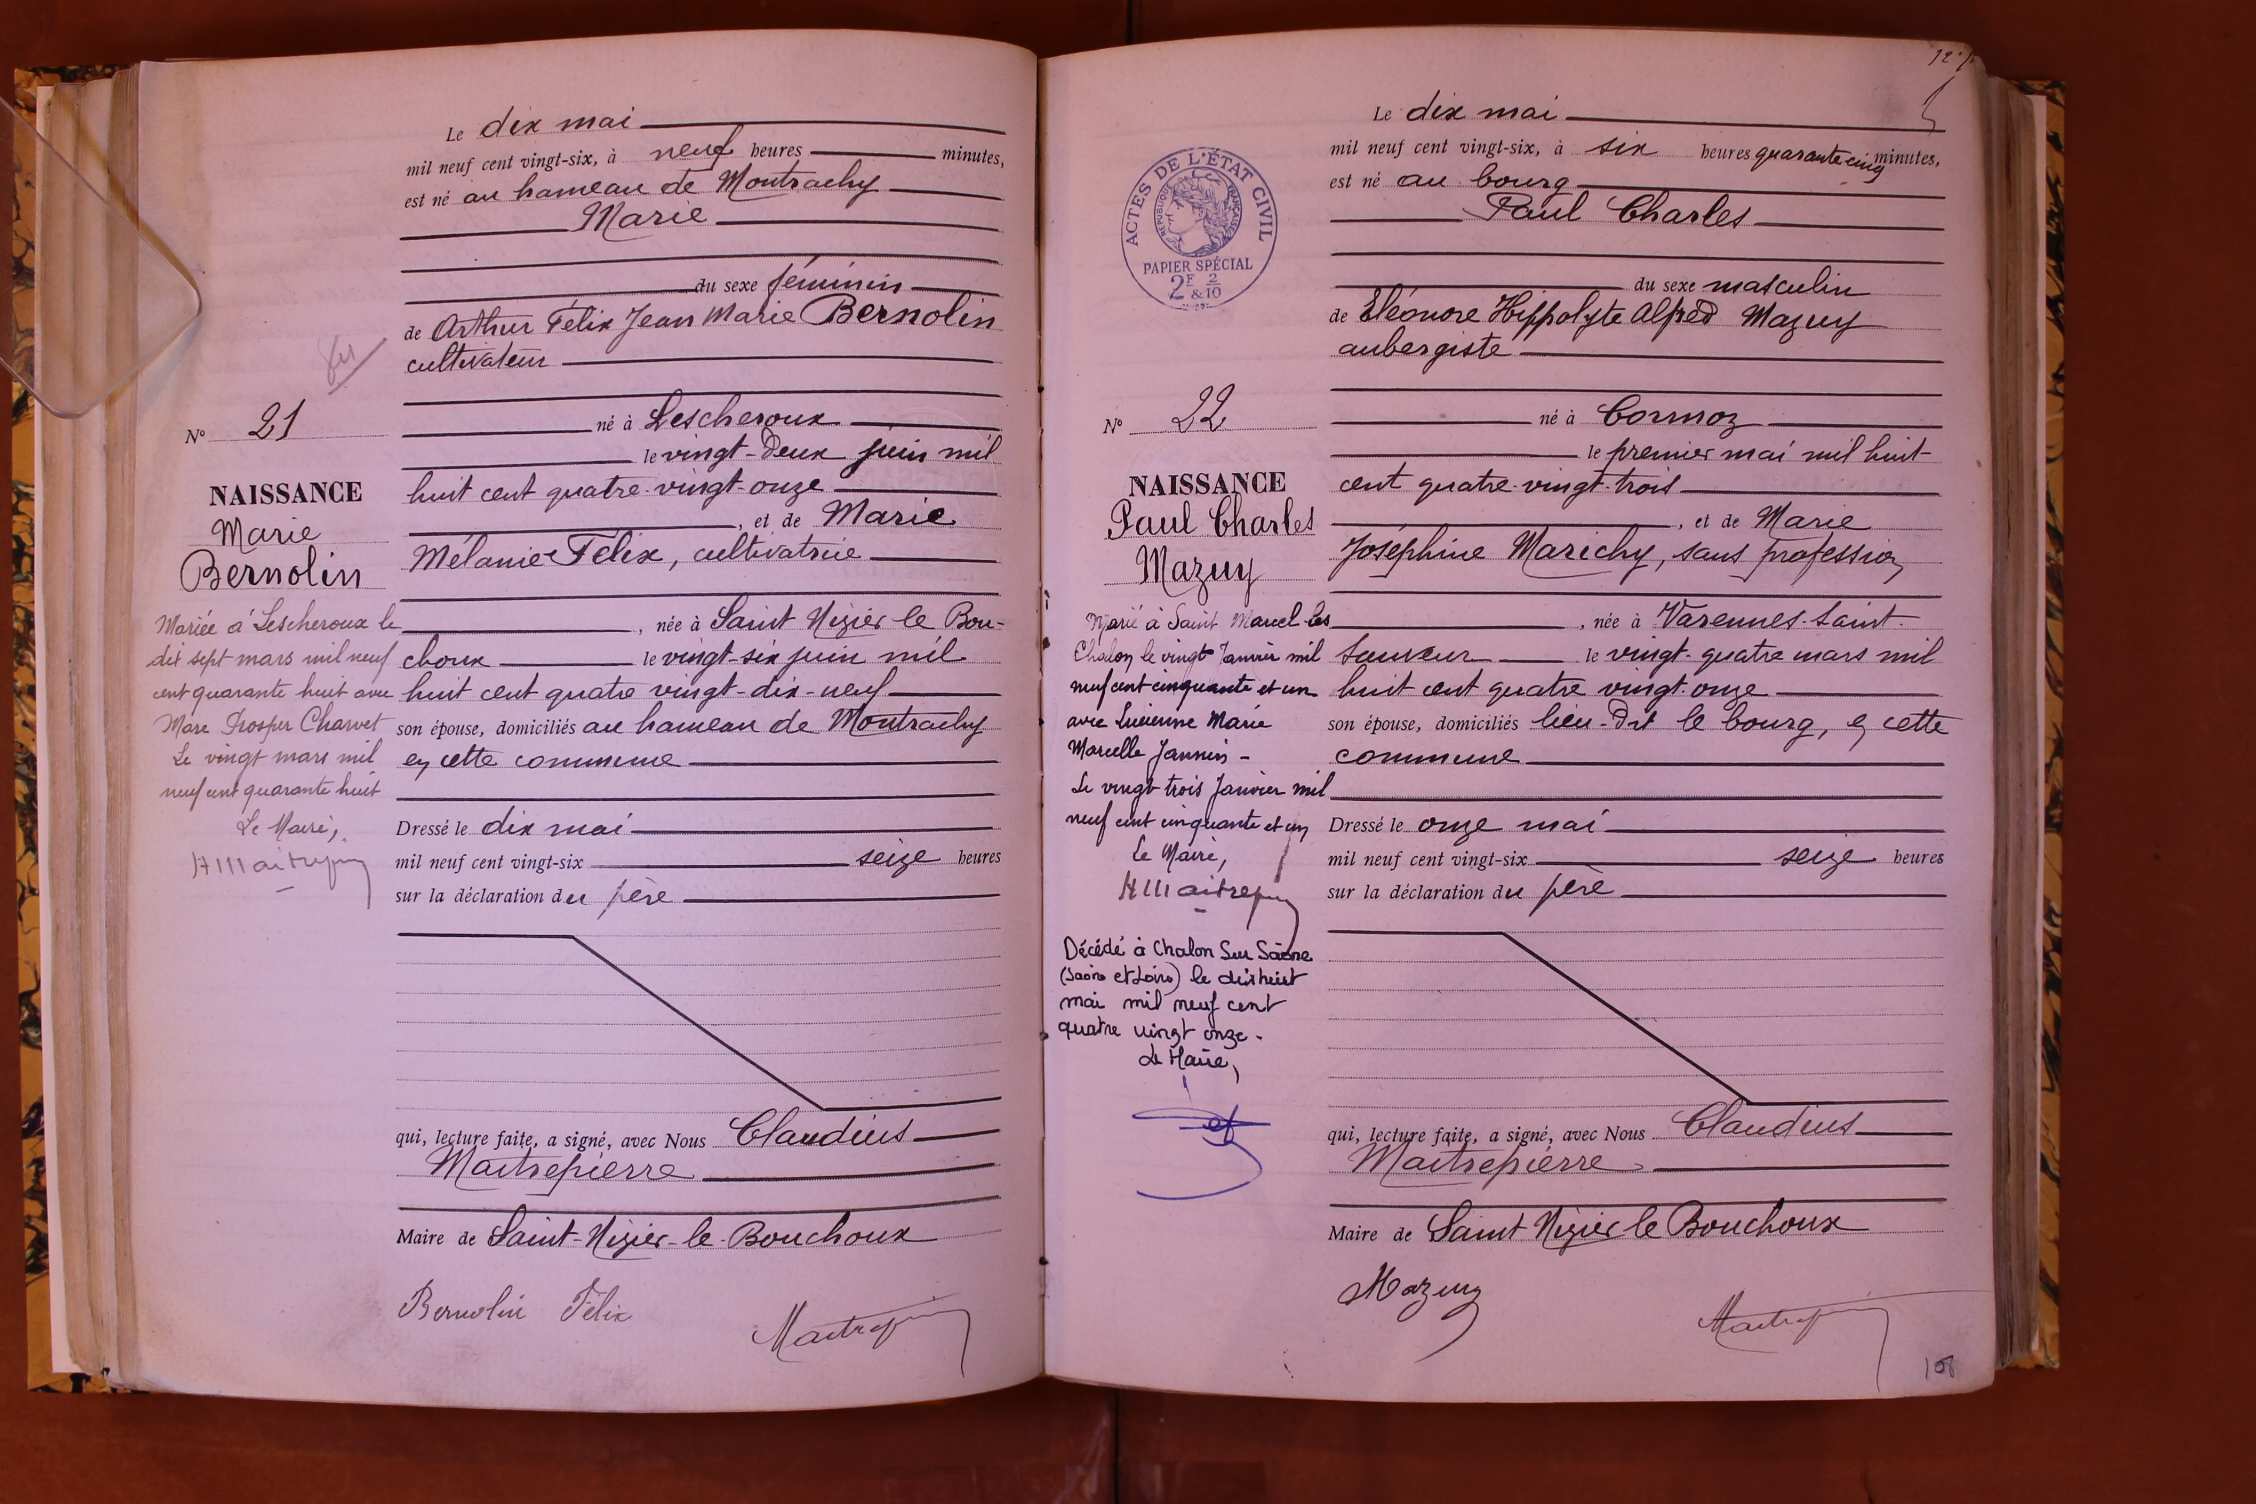 Le dix mai
mil neuf cent vingt-six, à neuf heures minutes,
est né au hameau de Montrachy
Marie
du sexe féminin
de Arthur Félix Jean Marie Bernolin
cultivateur
N° 21
né à Lescheroux
le vingt-deux juin mil
huit cent quatre-vingt-onze
NAISSANCE
Marie
Bernolin
, et de Marie
Mélanie Félix, cultivatrice
, née à Saint Nizier le Bou-
choux le vingt-six juin mil
huit cent quatre vingt-dix-neuf
son épouse, domiciliés au hameau de Montrachy
en cette commune
Mariée à Lescheroux le
dix sept mars mil neuf
cent quarante huit avec
Marc Prosper Charvet
Le vingt mars mil
neuf cent quarante huit
Le Maire,
Dressé le dix mai
mil neuf cent vingt-six seize heures
sur la déclaration du père
qui, lecture faite, a signé, avec Nous Claudius
Maitrepierre
Maire de Saint-Nizier-le-Bouchoux
Bernolin Félix
Le dix mai
mil neuf cent vingt-six, à six heures quarante cinq minutes,
est né au bourg
Paul Charles
ACTES DE L'ÉTAT CIVIL
RÉPUBLIQUE FRANÇAISE
PAPIER SPÉCIAL
2F & 2/10
du sexe masculin
de Eléonore Hippolyte Alfred Mazuy
aubergiste
N° 22
né à Cormoz
le premier mai mil huit-
cent quatre-vingt-trois
NAISSANCE
Paul Charles
Mazuy
, et de Marie
Joséphine Marichy, sans profession
, née à Varennes-Saint-
Sauveur le vingt-quatre mars mil
huit cent quatre vingt-onze
son épouse, domiciliés lieu-dit le bourg, en cette
commune
Marié à Saint Marcel-les
Chalon le vingt Janvier mil
neuf cent cinquante et un
avec Lucienne Marie
Marcelle Jannin -
Le vingt trois Janvier mil
neuf cent cinquante et un
Le Maire,
Décédé à Chalon Sur Saône
(Saône et Loire) le dix huit
mai mil neuf cent
quatre vingt onze.
Le Maire,
Dressé le onze mai
mil neuf cent vingt-six seize heures
sur la déclaration du père
qui, lecture faite, a signé, avec Nous Claudius
Maitrepierre
Maire de Saint Nizier le Bouchoux
Mazuy
108